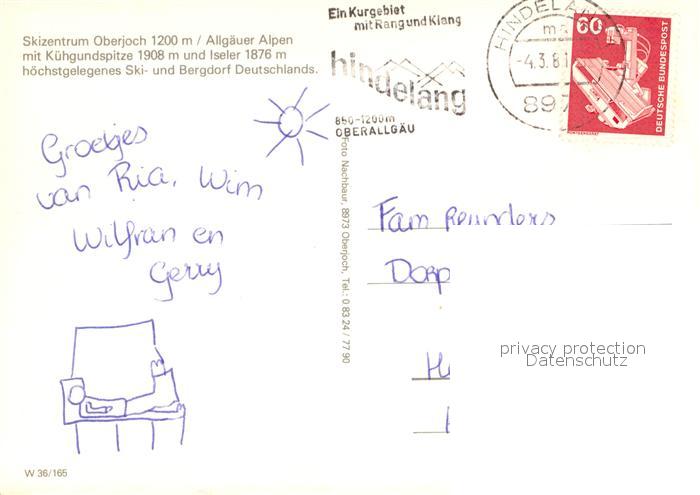 Skizentrum Oberjoch 1200 m / Allgäuer Alpen
mit Kühgundspitze 1908 m und Iseler 1876 m
höchstgelegenes Ski- und Bergdorf Deutschlands.
Groetjes
van Ria, Wim
Wilfran en
Gerry
W 36/165
Foto Nachbaur, 8973 Oberjoch, Tel.: 0 83 24 / 77 90
Ein Kurgebiet
mit Rang und Klang
hindelang
850-1200m
OBERALLGÄU
HINDELAN
-4.3.81
897
60
DEUTSCHE BUNDESPOST
Fam Reunders
Dorp
privacy protection
Datenschutz